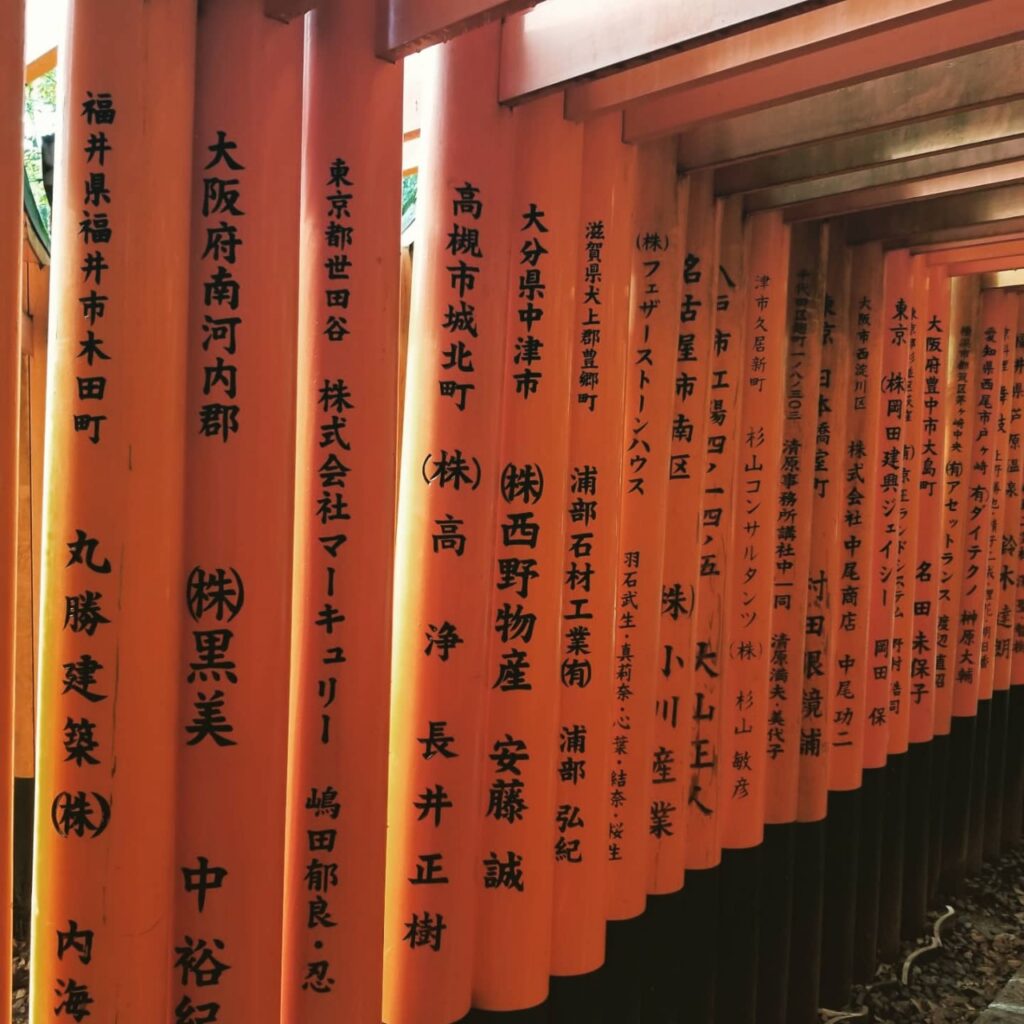 福井県福井市木田町 丸勝建築(株) 内海
大阪府南河内郡 (株)黒美 中裕紀
東京都世田谷 株式会社マーキュリー 嶋田郁良・忍
高槻市城北町 (株)高浄 長井正樹
大分県中津市 (株)西野物産 安藤誠
滋賀県犬上郡豊郷町 浦部石材工業(有) 浦部弘紀
(株)フェザーストーンハウス 羽石武生・真莉奈・心葉・結奈・桜生
名古屋市南区 (株)小川産業
八百市工場四ノ一四ノ五 大山正人
津市久居新町 杉山コンサルタンツ(株) 杉山敏彦
千代田区麹町一ノ八ノ三〇三 清原事務所講社中一同 清原満夫・美代子
東京日本橋室町 村田眼鏡舗
大阪市西淀川区 株式会社中尾商店 中尾功二
東京 (株)岡田建興ジェイシー 岡田保
大阪府豊中市大島町 名田未保子
(有)アセットランス 渡辺直昭
愛知県西尾市戸ヶ崎 (有)ダイテクノ 榊原大輔
鈴木達朗
福井県芦原温泉